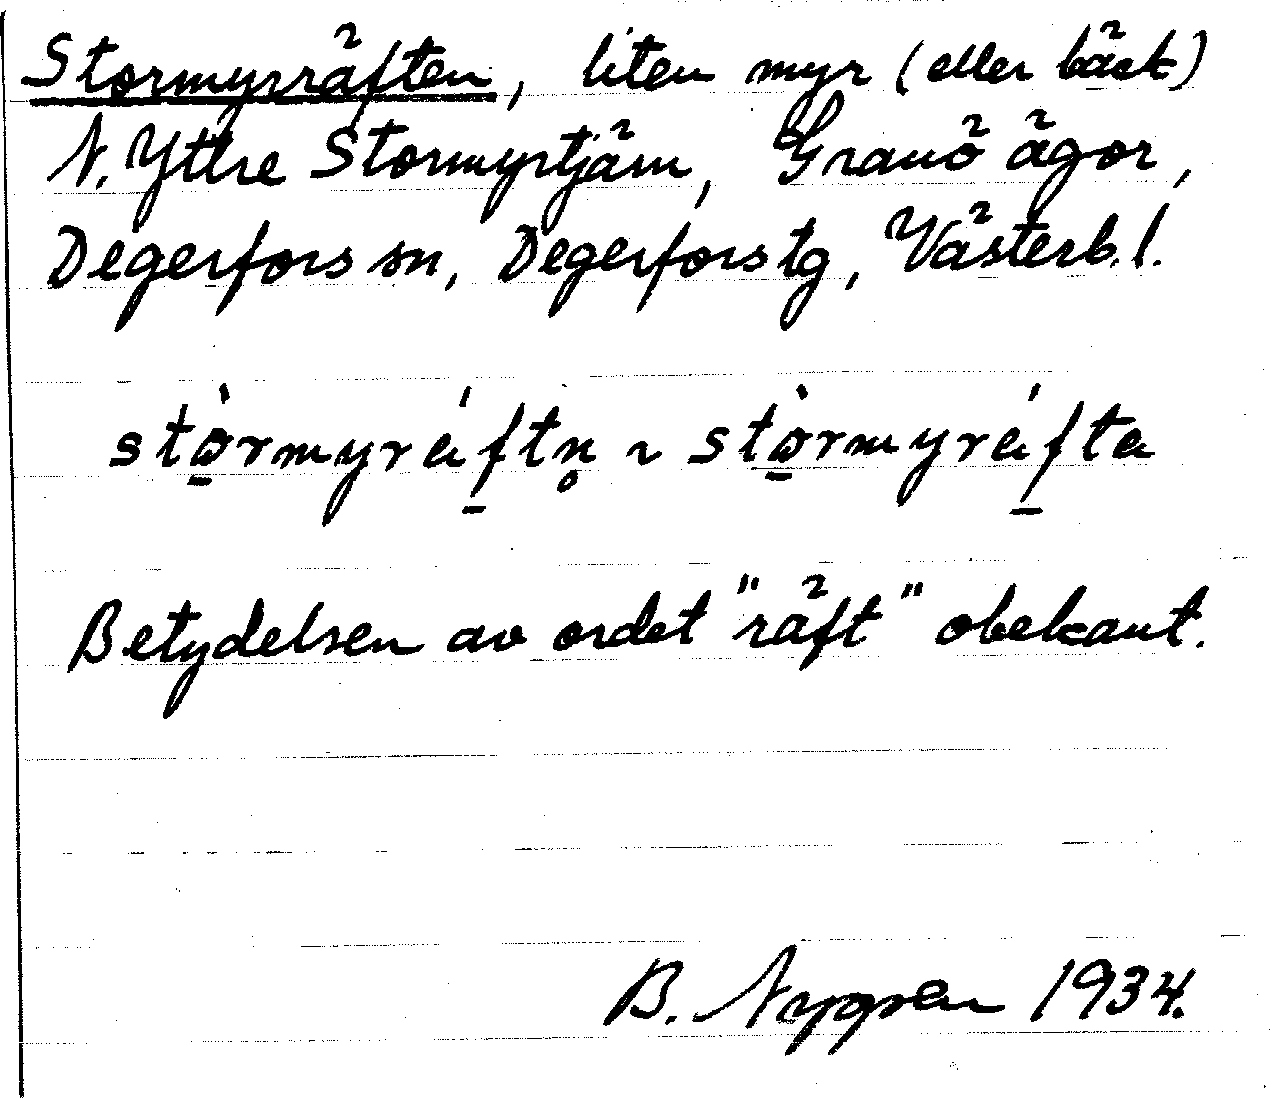 Stormyrräften, liten myr (eller bäck)
N. Yttre Stormyrtjärn, Granö ägor,
Degerfors sn, Degerfors tg, Västerb. l.
stò̱rmyráf̱tn̥ ~ stò̱rmyráf̱ta
Betydelsen av ordet "räft" obekant.
B. Nygren 1934.